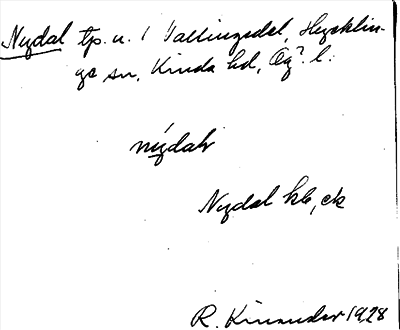 Nydal tp. u. / Vallingedal, Hycklin-
ge sn, Kinda hd, Ög. l.
nýdaḷ
Nydal kb, ek
R. Kinander 1928